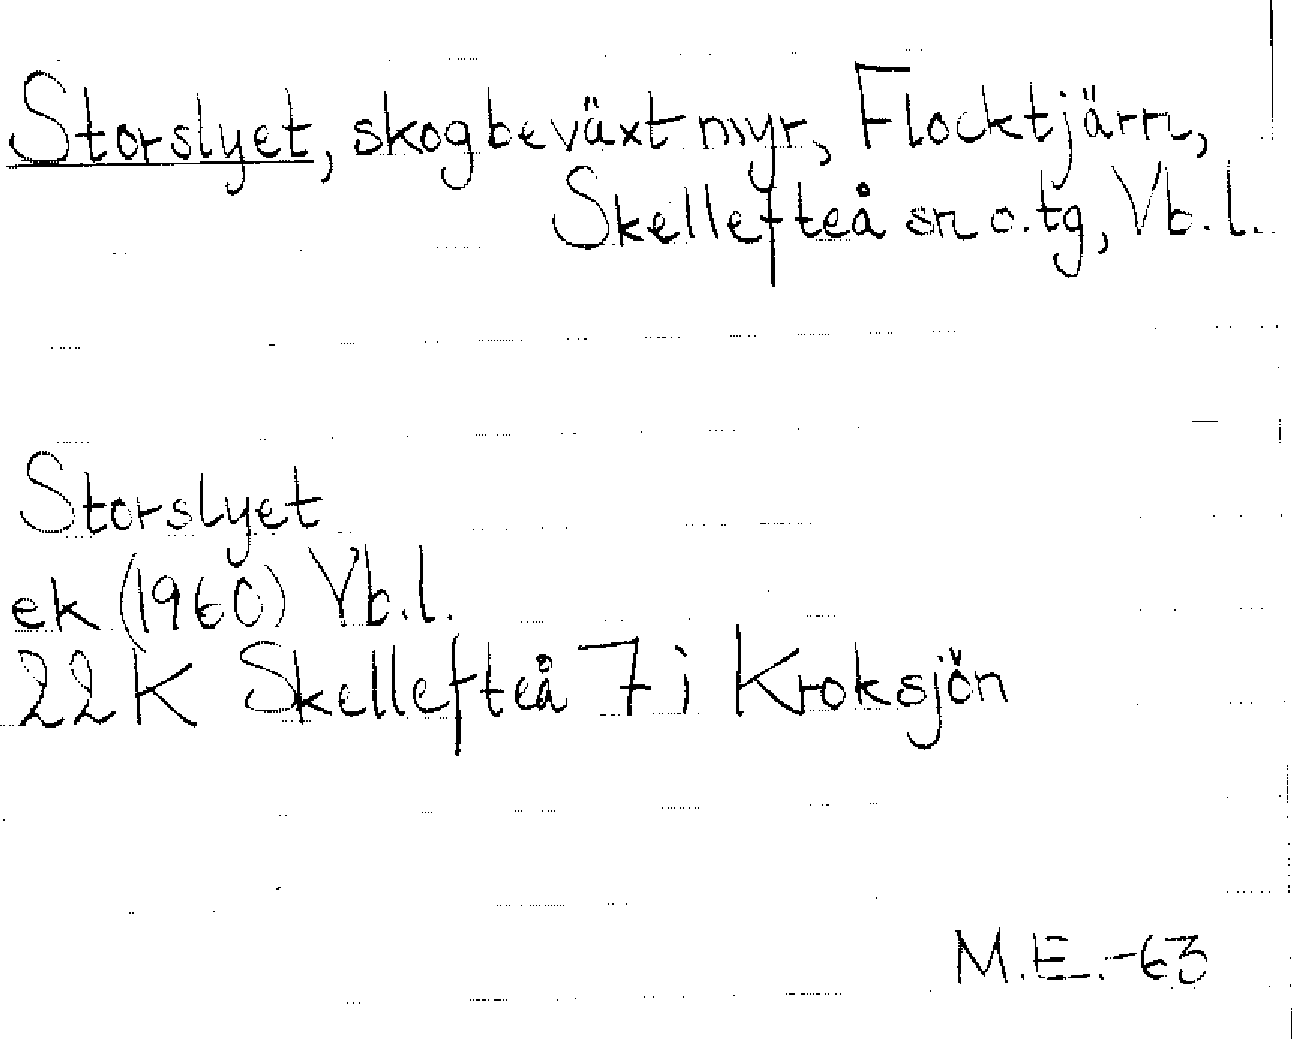 Storslyet, skogbeväxt myr, Flocktjärn,
Skellefteå sn o. tg, Vb. l.
Storslyet
ek (1960) Vb. l.
22K Skellefteå 7 i Kroksjön
M.E.-63